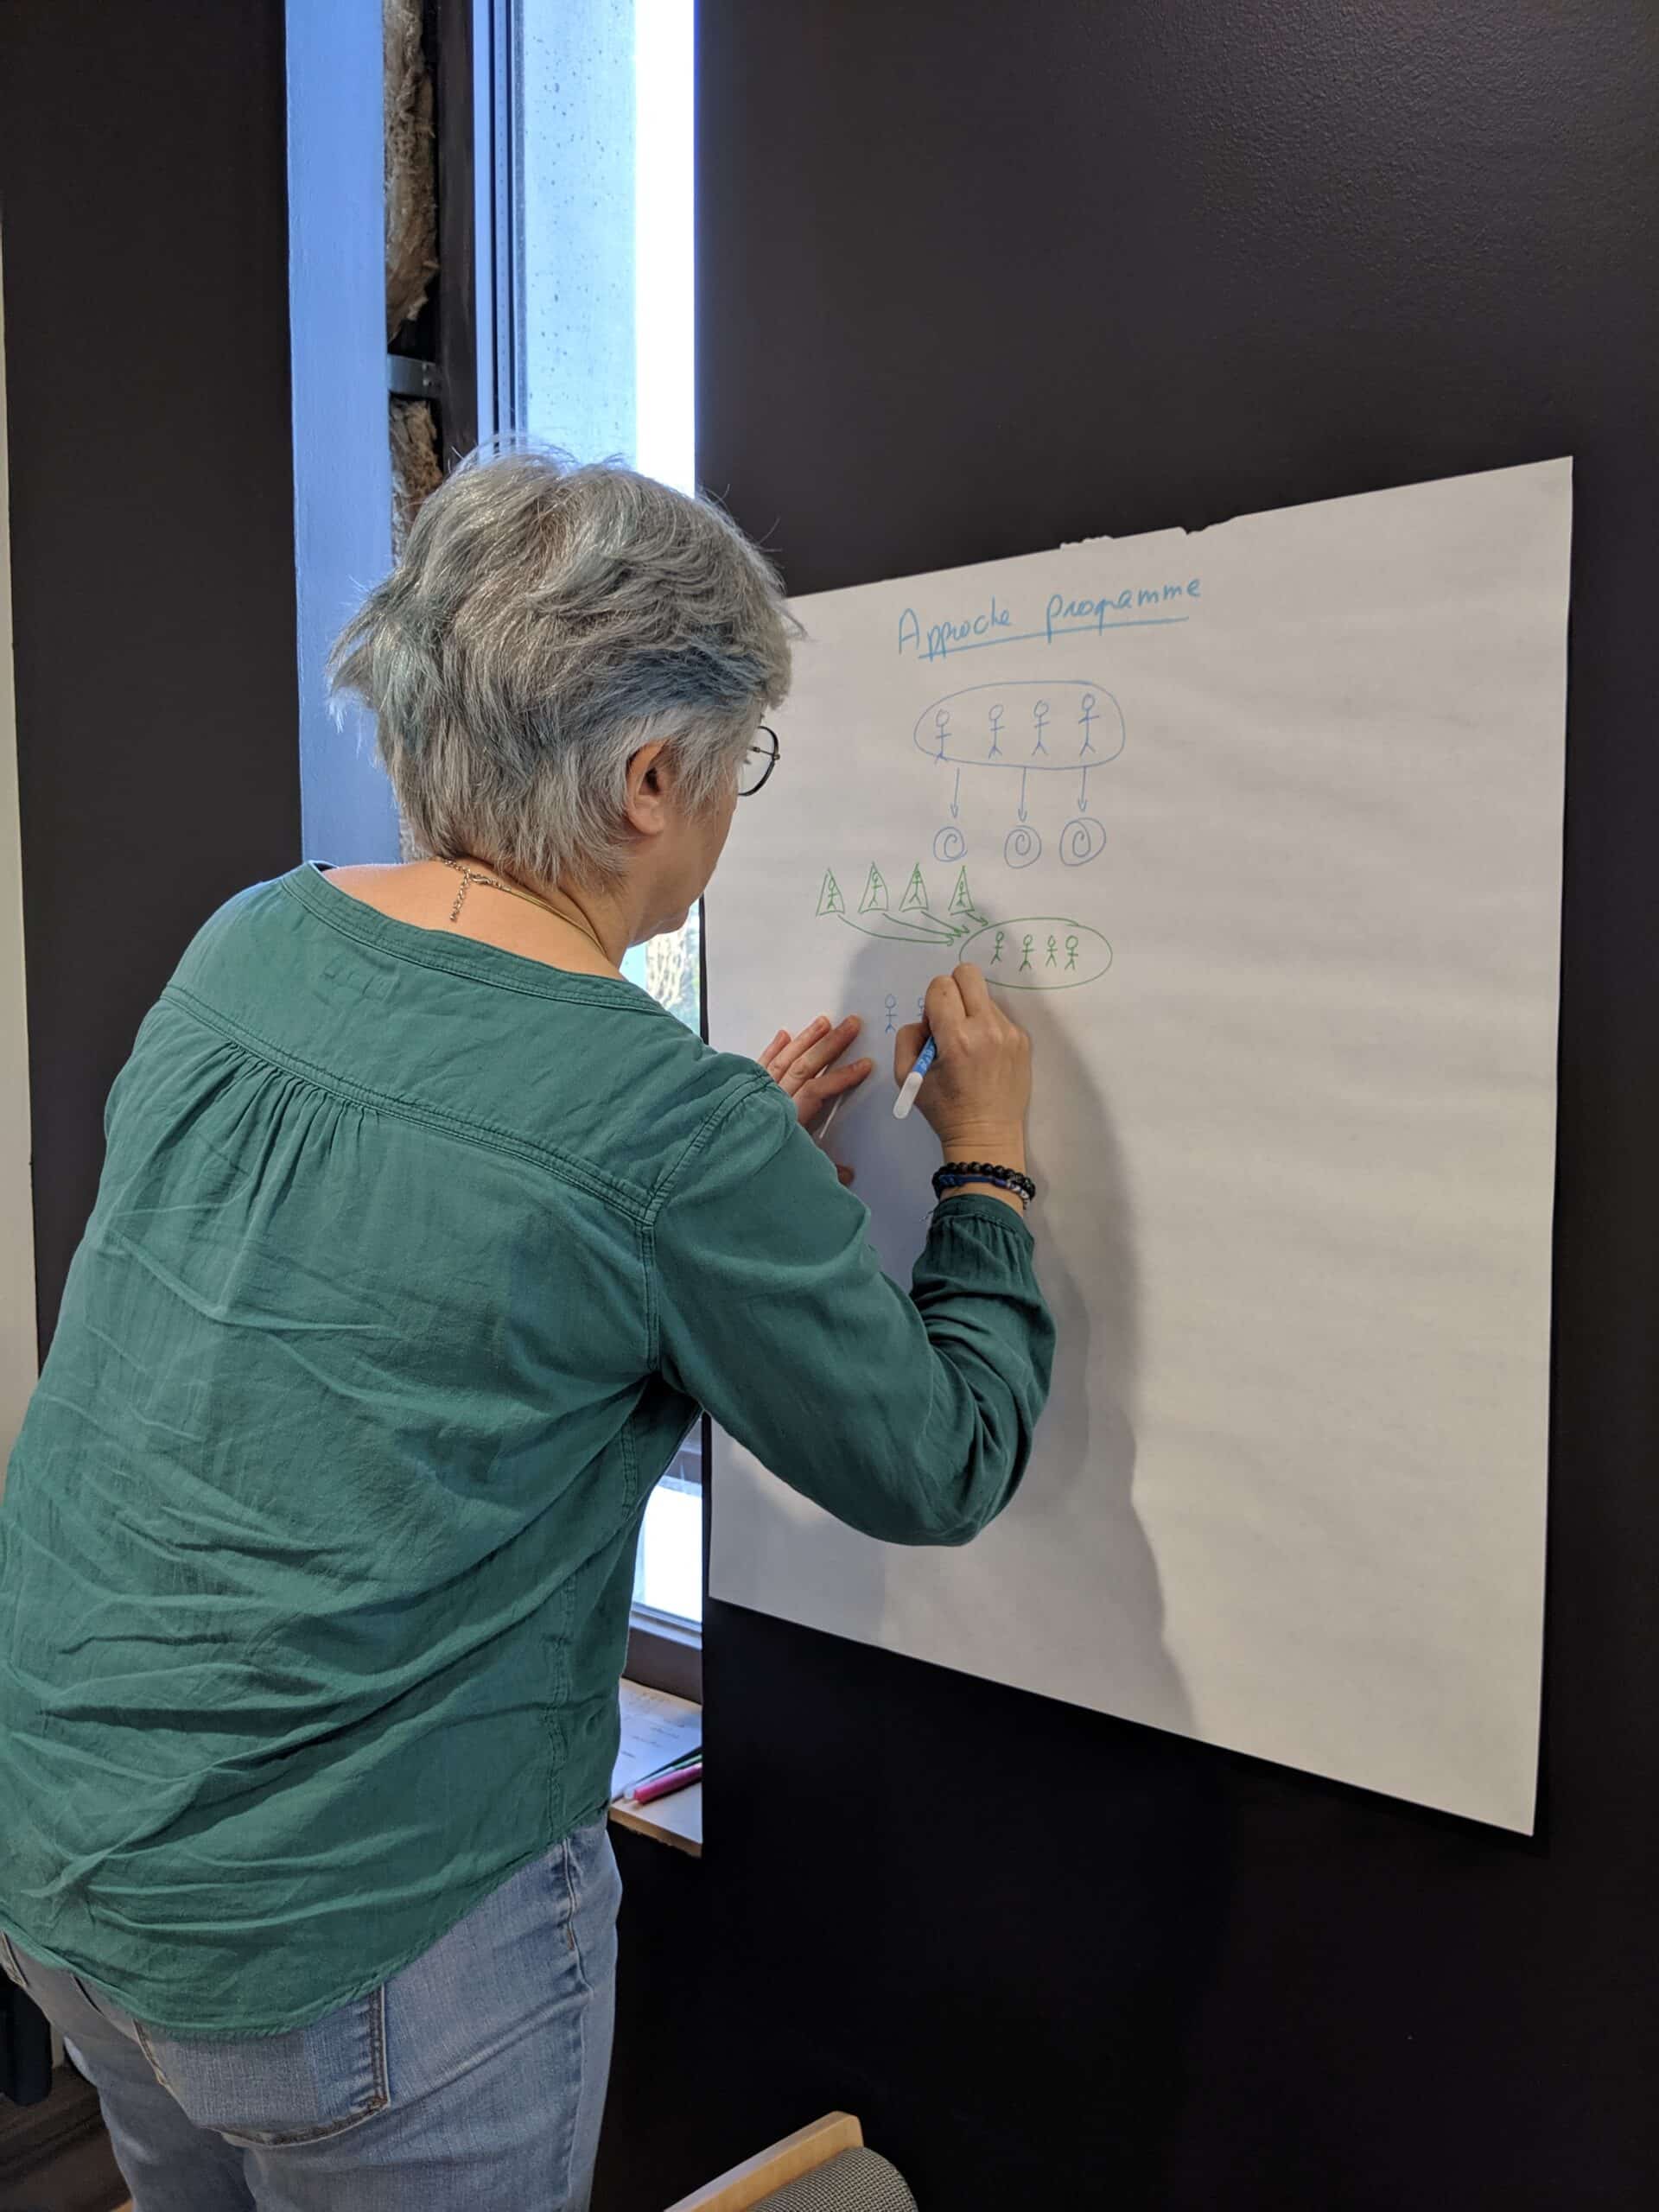 Approche programme